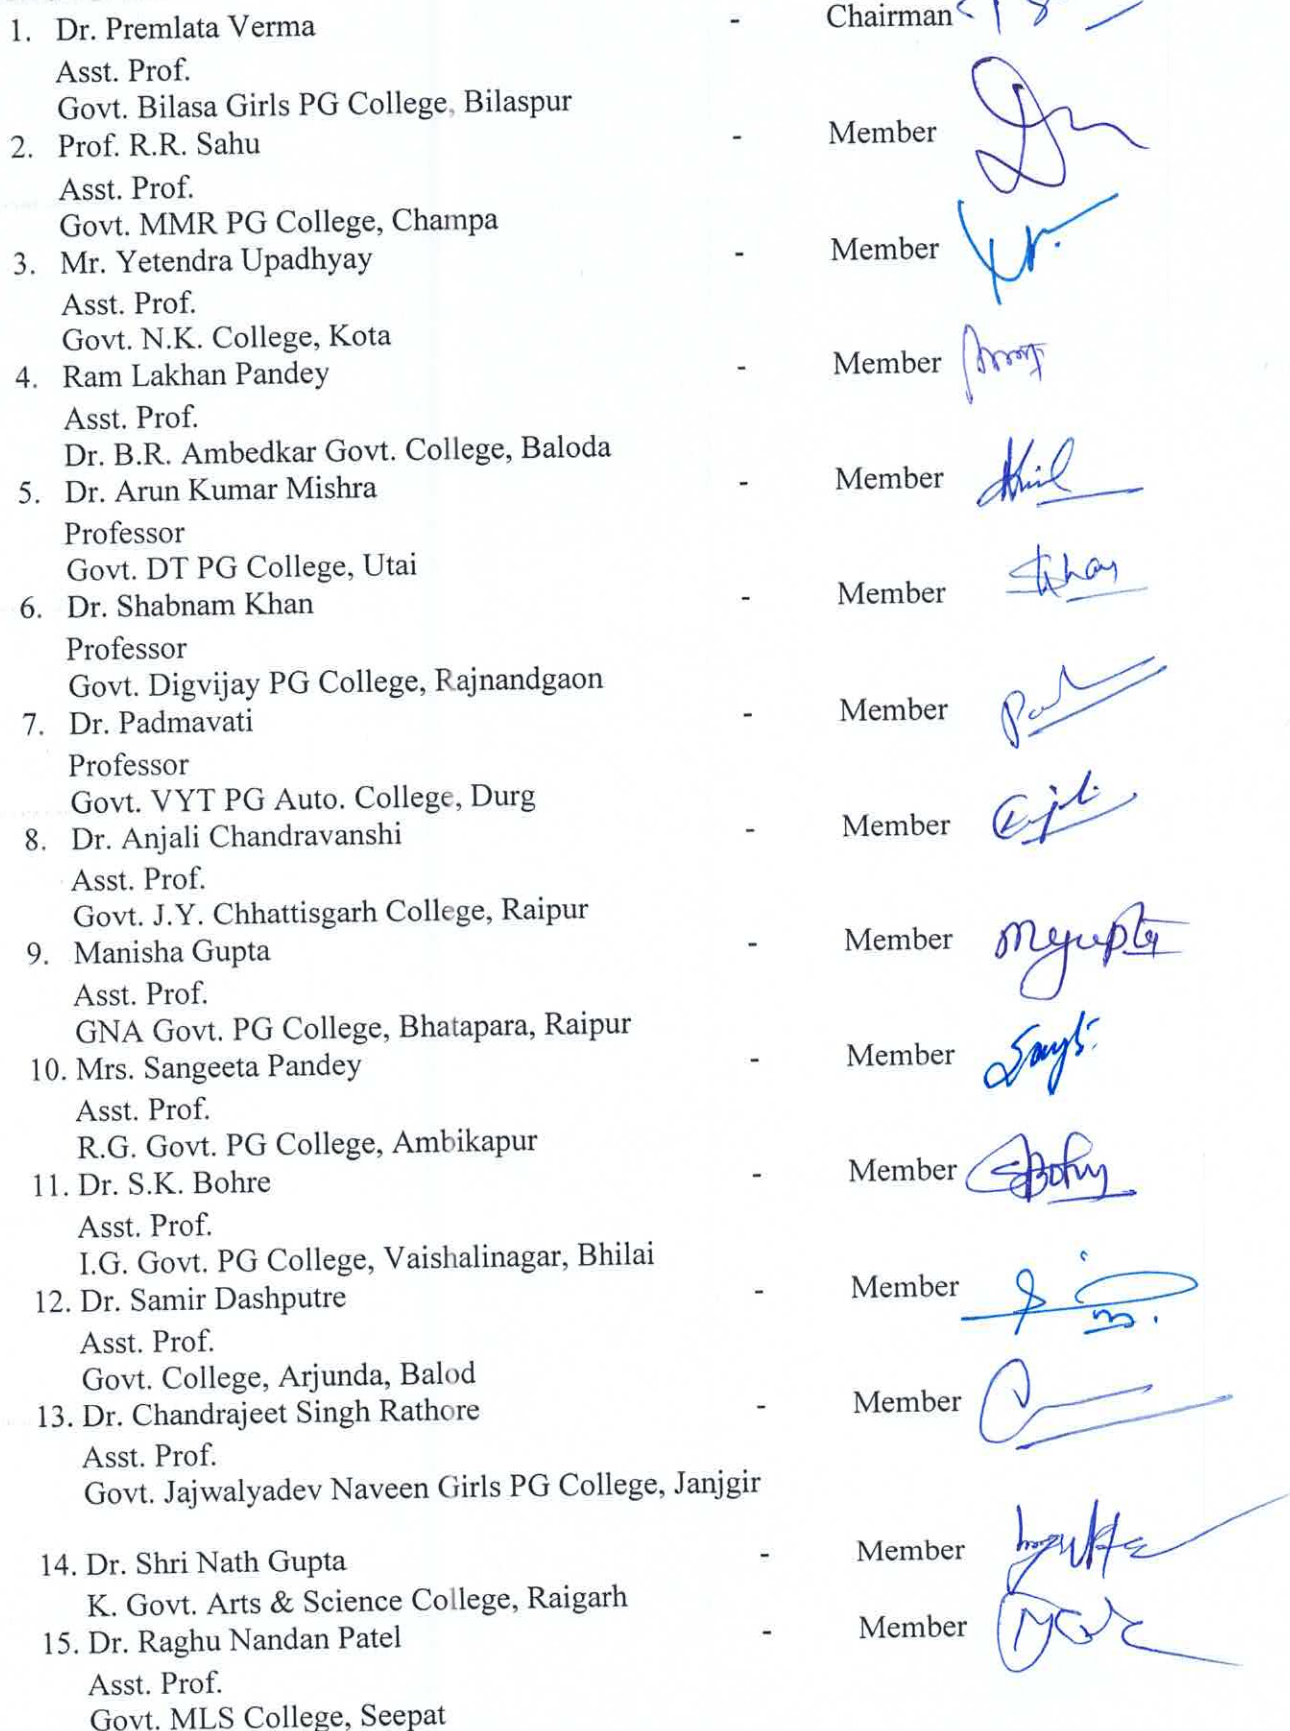 1. Dr. Premlata Verma - Chairman
Asst. Prof.
Govt. Bilasa Girls PG College, Bilaspur
2. Prof. R.R. Sahu - Member
Asst. Prof.
Govt. MMR PG College, Champa
3. Mr. Yetendra Upadhyay - Member
Asst. Prof.
Govt. N.K. College, Kota
4. Ram Lakhan Pandey - Member
Asst. Prof.
Dr. B.R. Ambedkar Govt. College, Baloda
5. Dr. Arun Kumar Mishra - Member
Professor
Govt. DT PG College, Utai
6. Dr. Shabnam Khan - Member
Professor
Govt. Digvijay PG College, Rajnandgaon
7. Dr. Padmavati - Member
Professor
Govt. VYT PG Auto. College, Durg
8. Dr. Anjali Chandravanshi - Member
Asst. Prof.
Govt. J.Y. Chhattisgarh College, Raipur
9. Manisha Gupta - Member Mgupta
Asst. Prof.
GNA Govt. PG College, Bhatapara, Raipur
10. Mrs. Sangeeta Pandey - Member
Asst. Prof.
R.G. Govt. PG College, Ambikapur
11. Dr. S.K. Bohre - Member
Asst. Prof.
I.G. Govt. PG College, Vaishalinagar, Bhilai
12. Dr. Samir Dashputre - Member
Asst. Prof.
Govt. College, Arjunda, Balod
13. Dr. Chandrajeet Singh Rathore - Member
Asst. Prof.
Govt. Jajwalyadev Naveen Girls PG College, Janjgir
14. Dr. Shri Nath Gupta - Member
K. Govt. Arts & Science College, Raigarh
15. Dr. Raghu Nandan Patel - Member
Asst. Prof.
Govt. MLS College, Seepat